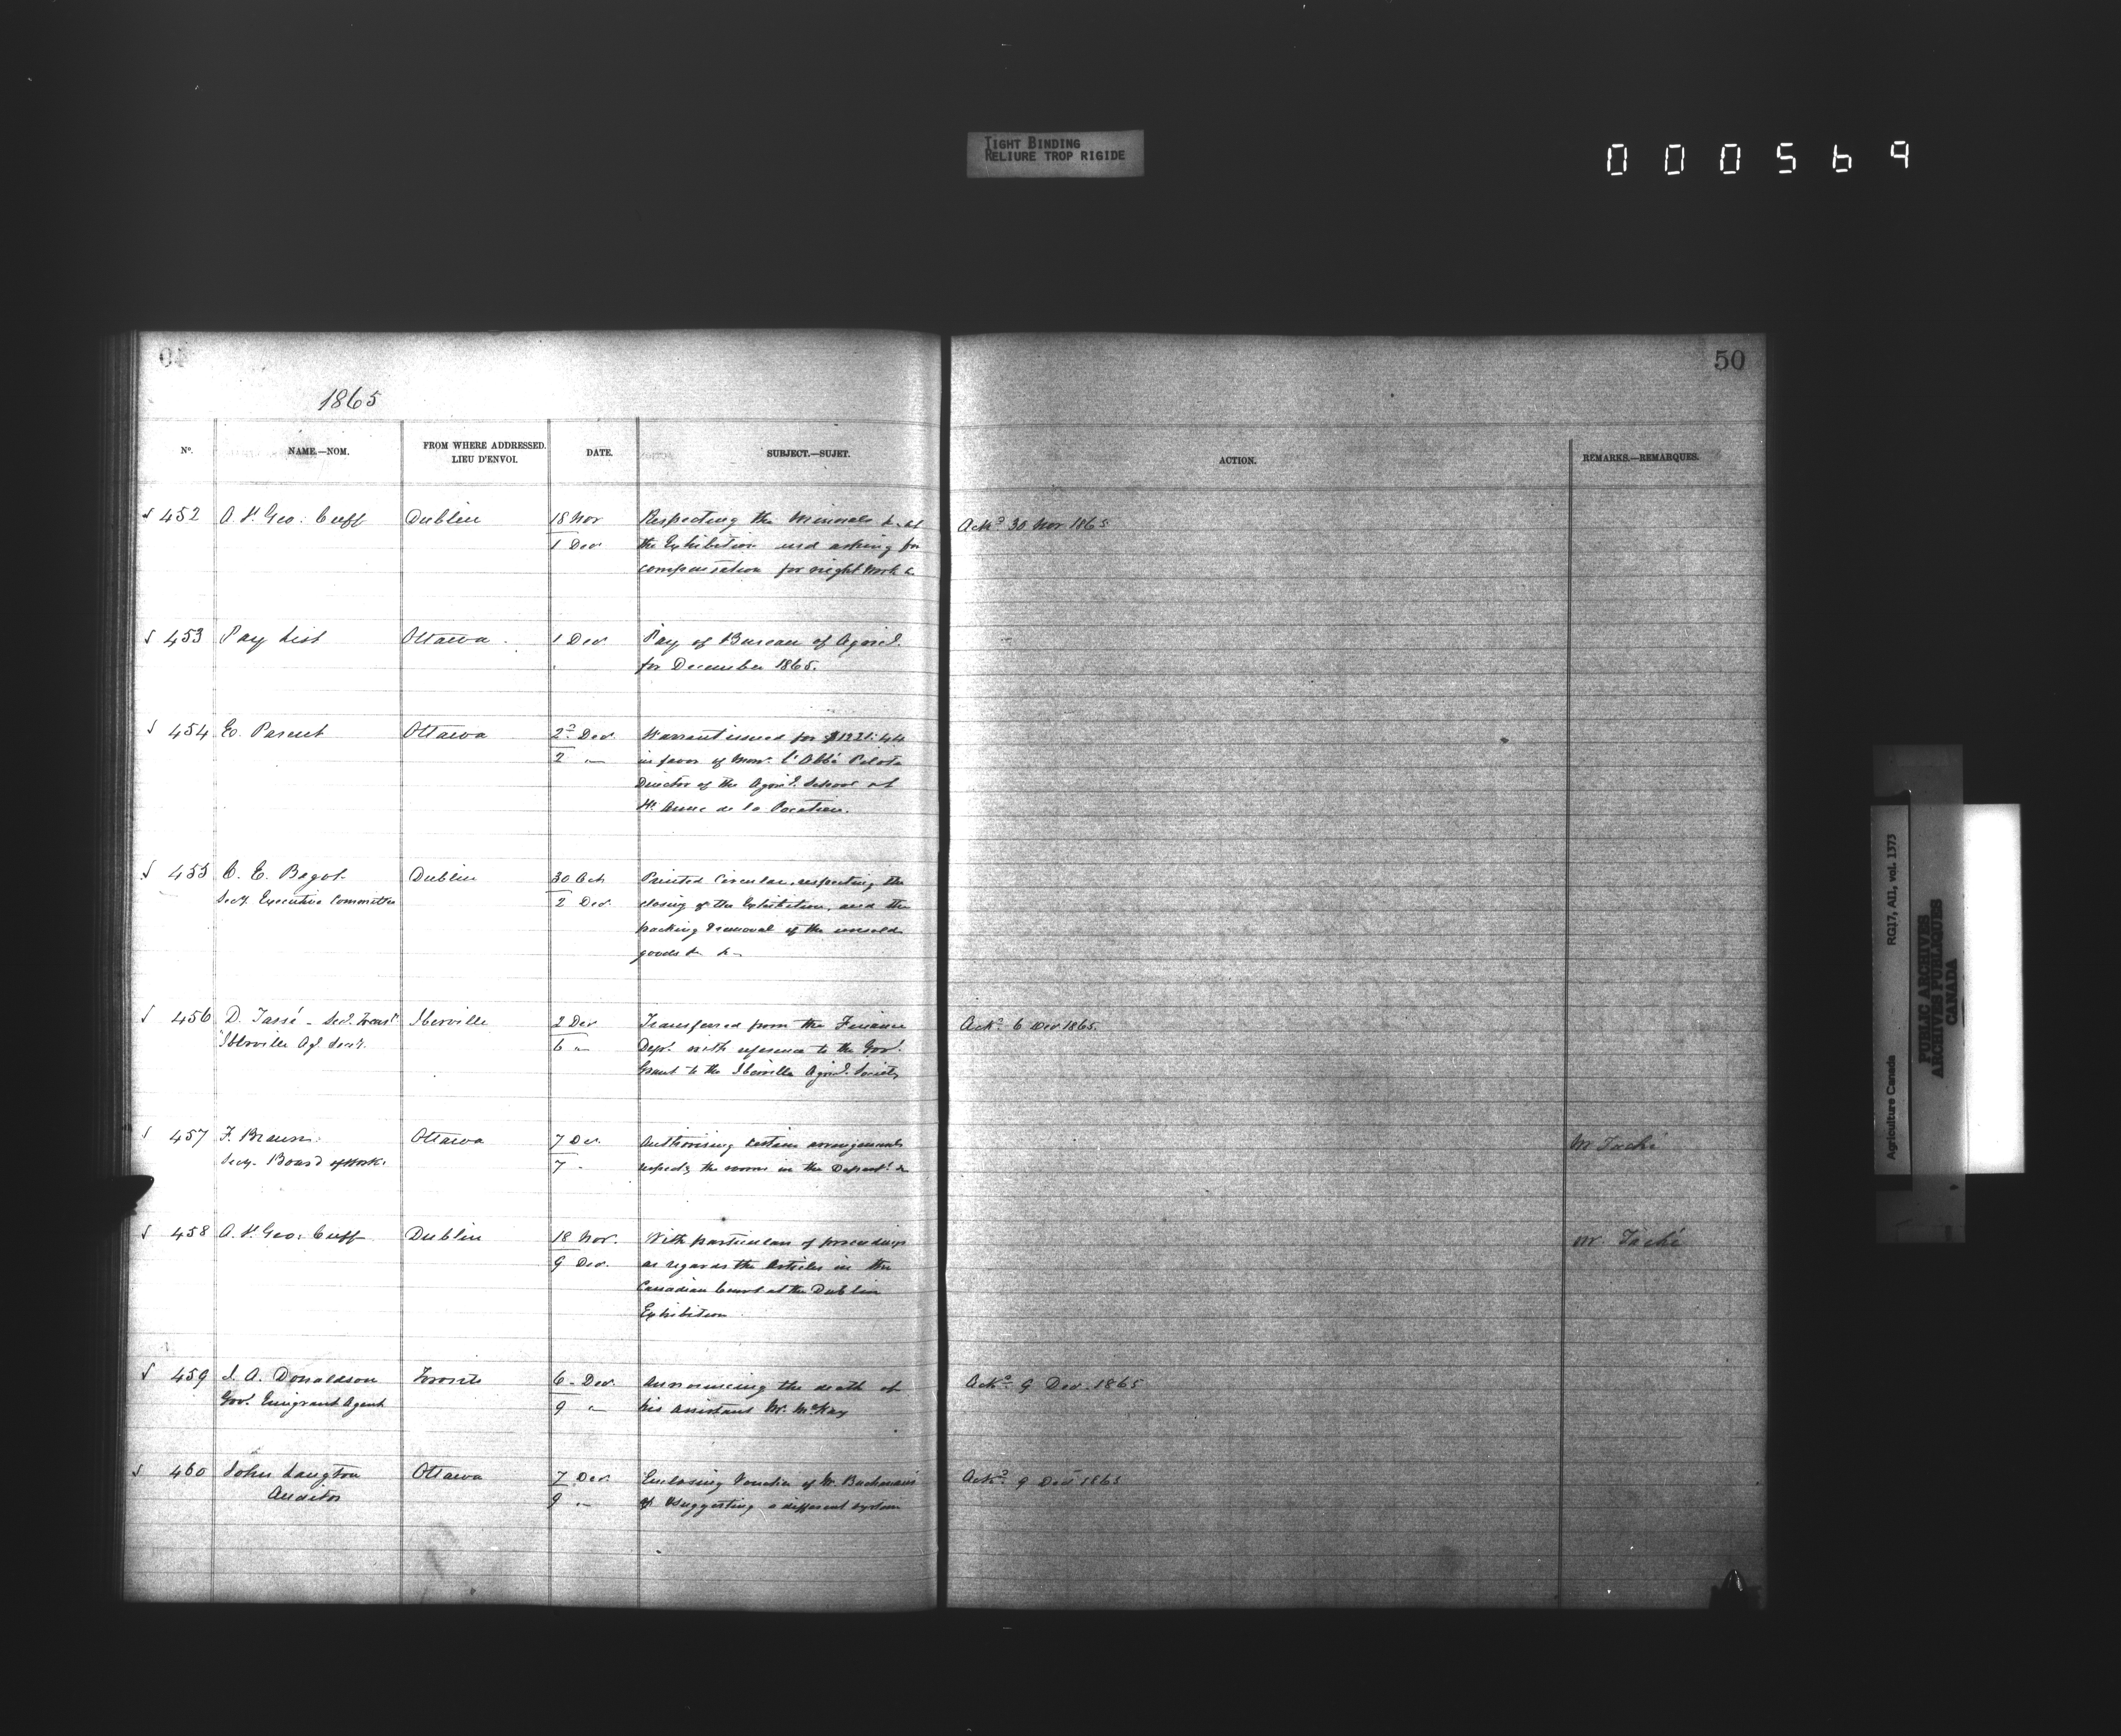 TIGHT BINDING
RELIURE TROP RIGIDE
000569
50
1865
No. NAME.—NOM. FROM WHERE ADDRESSED. LIEU D'ENVOI. DATE. SUBJECT.—SUJET. ACTION. REMARKS.—REMARQUES.
452 A. St. Geo: Cuff Dublin 18 Nov Respecting the Minerals &c at Ackd 30 Nov 1865
1 Dec the Exhibition and asking for
compensation for night work &c
453 Pay List Ottawa 1 Dec Pay of Bureau of Agricl.
for December 1865.
454 E. Parent Ottawa 2d Dec Warrant issued for
2 " in favor of Monr. l'Abbé Pilote
Director of the Agricl. School at
St. Anne de la Pocatiere.
455 C. E. Bagot Dublin 30 Oct Printed Circular, respecting the
Secy. Executive Committee 2 Dec closing of the Exhibition, and the
packing & removal of the unsold
goods &c &c
456 D. Tassé - Sec. Treasr. Iberville 2 Dec Transferred from the Finance Ackd 6 Dec 1865.
Iberville Agl. Socy. 6 " Dept. with reference to the Govt.
Grant to the Iberville Agricl. Society
457 F. Braun Ottawa 7 Dec. Authorising certain arrangements Mr Taché
Secy. Board of Works 7 " respectg the rooms in the Departt. &c
458 A. St. Geo: Cuff Dublin 18 Nov. With particulars of proceedings Mr Taché
9 Dec. as regards the Articles in the
Canadian Court at the Dublin
Exhibition
459 J. A. Donaldson Toronto 6 Dec. Announcing the death of Ackd 9 Dec. 1865
Govt. Emigrant Agent 9 " his Assistant Mr. McKay
460 John Langton Ottawa 7 Dec. Enclosing Voucher of Mr. Buchanan's Ackd 9 Dec 1865
Auditor 9 " & suggesting a different system
Agriculture Canada RG17, AII, vol. 1373
PUBLIC ARCHIVES
ARCHIVES PUBLIQUES
CANADA